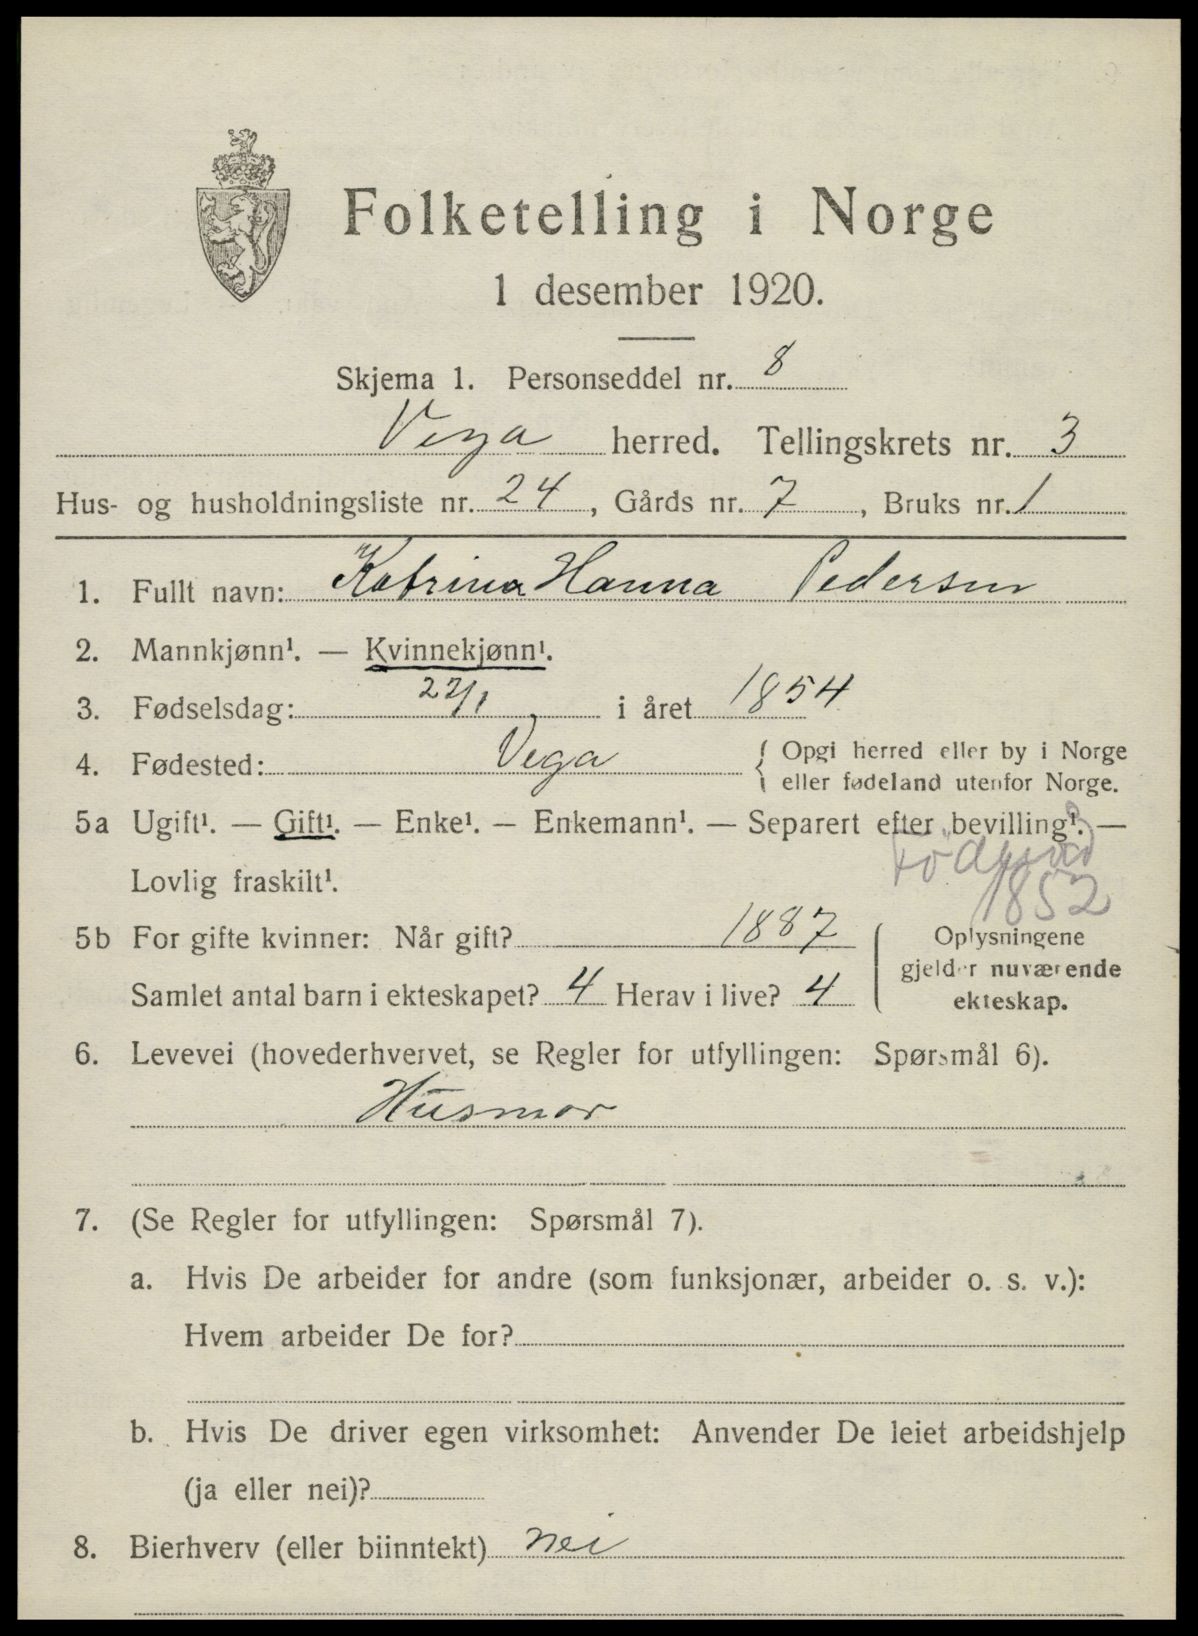 Folketelling i Norge
1 desember 1920.
Skjema 1. Personseddel nr. 8
Vega herred. Tellingskrets nr. 3
Hus- og husholdningsliste nr. 24, Gårds nr. 7, Bruks nr. 1
1. Fullt navn: Katrina Hanna Pedersen
2. Mannkjønn¹. — Kvinnekjønn¹.
3. Fødselsdag: 22/1 i året 1854
4. Fødested: Vega { Opgi herred eller by i Norge
eller fødeland utenfor Norge.
5a Ugift¹. — Gift¹. — Enke¹. — Enkemann¹. — Separert efter bevilling¹. —
Lovlig fraskilt¹.
1852
5b For gifte kvinner: Når gift? 1887
Samlet antal barn i ekteskapet? 4 Herav i live? 4
Oplysningene
gjelder nuværende
ekteskap.
6. Levevei (hovederhvervet, se Regler for utfyllingen: Spørsmål 6).
Husmor
7. (Se Regler for utfyllingen: Spørsmål 7).
a. Hvis De arbeider for andre (som funksjonær, arbeider o. s. v.):
Hvem arbeider De for?
b. Hvis De driver egen virksomhet: Anvender De leiet arbeidshjelp
(ja eller nei)?
8. Bierhverv (eller biinntekt) nei